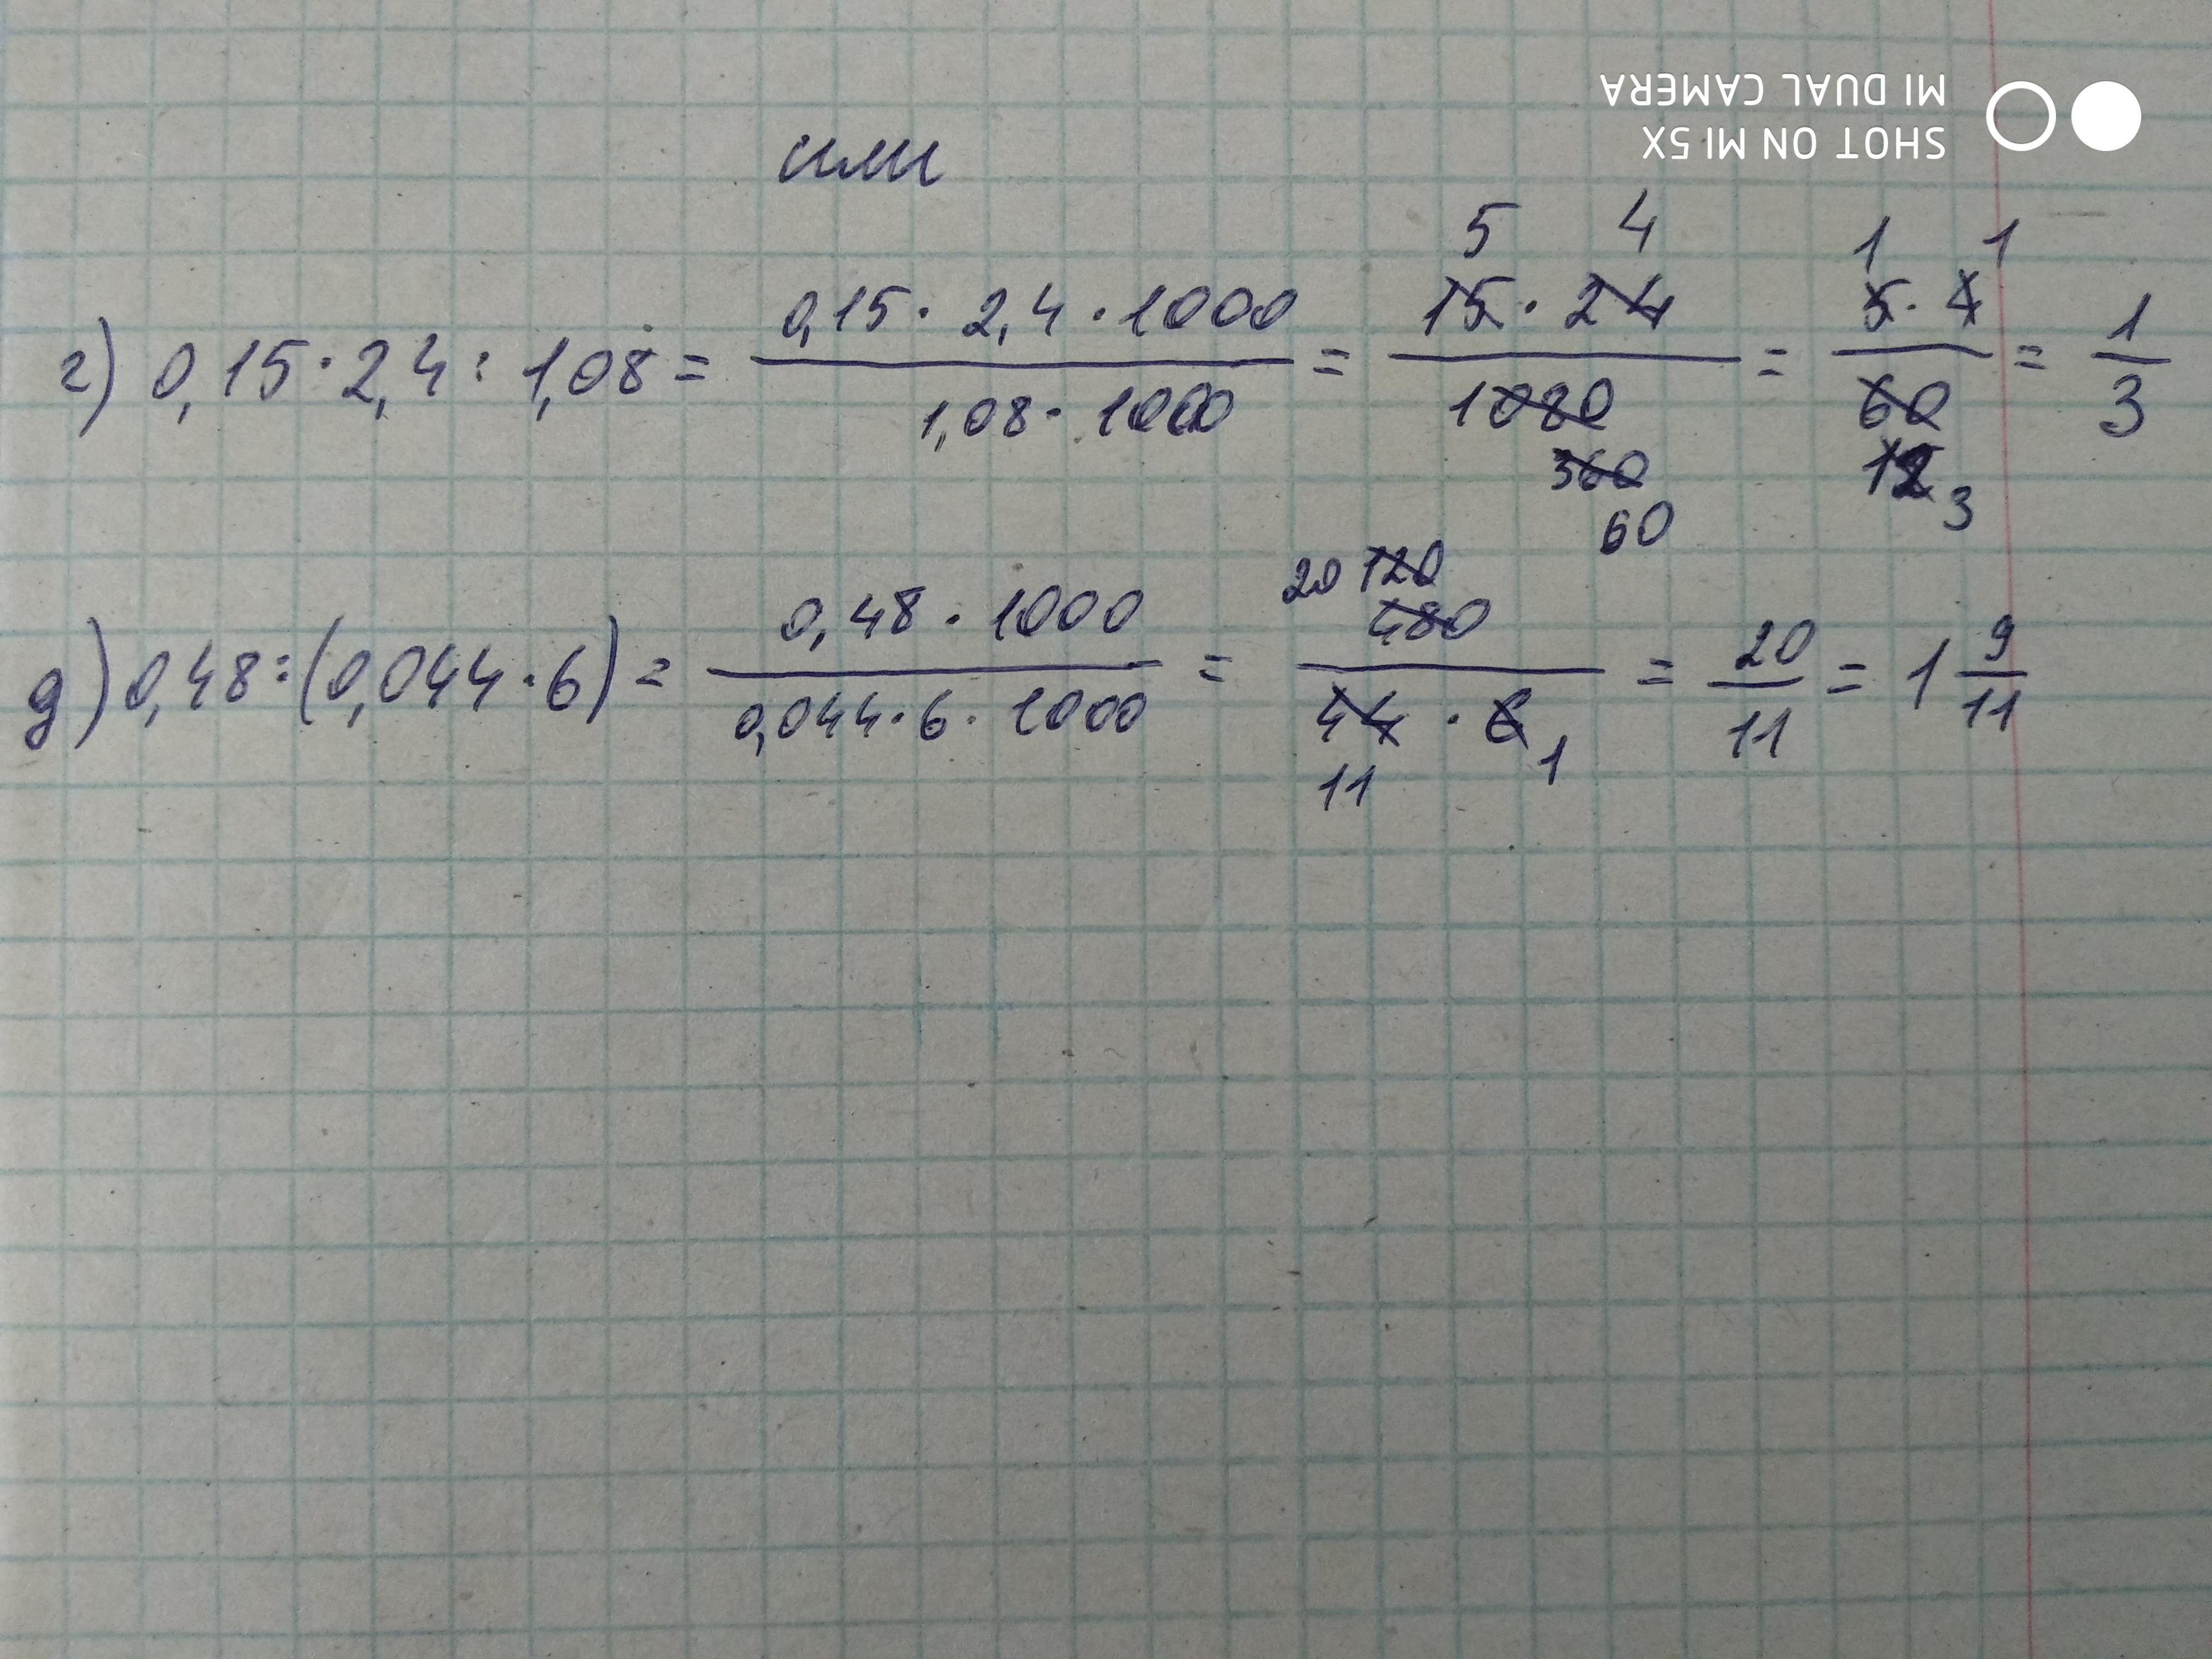 SHOT ON MI 5X
MI DUAL CAMERA
или
г) 0,15 · 2,4 : 1,08 = (0,15 · 2,4 · 1000)/(1,08 · 1000) = (15 · 24)/1080 = (5 · 4)/60 = 1/3
5 4
360
60
1 1
12 3
д) 0,48 : (0,044 · 6) = (0,48 · 1000)/(0,044 · 6 · 1000) = 480/(44 · 6) = 20/11 = 1 9/11
20 120
11 1